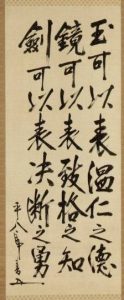 玉可以表温仁之德
鏡可以表致格之知
劍可以表决斷之勇
平八郎書